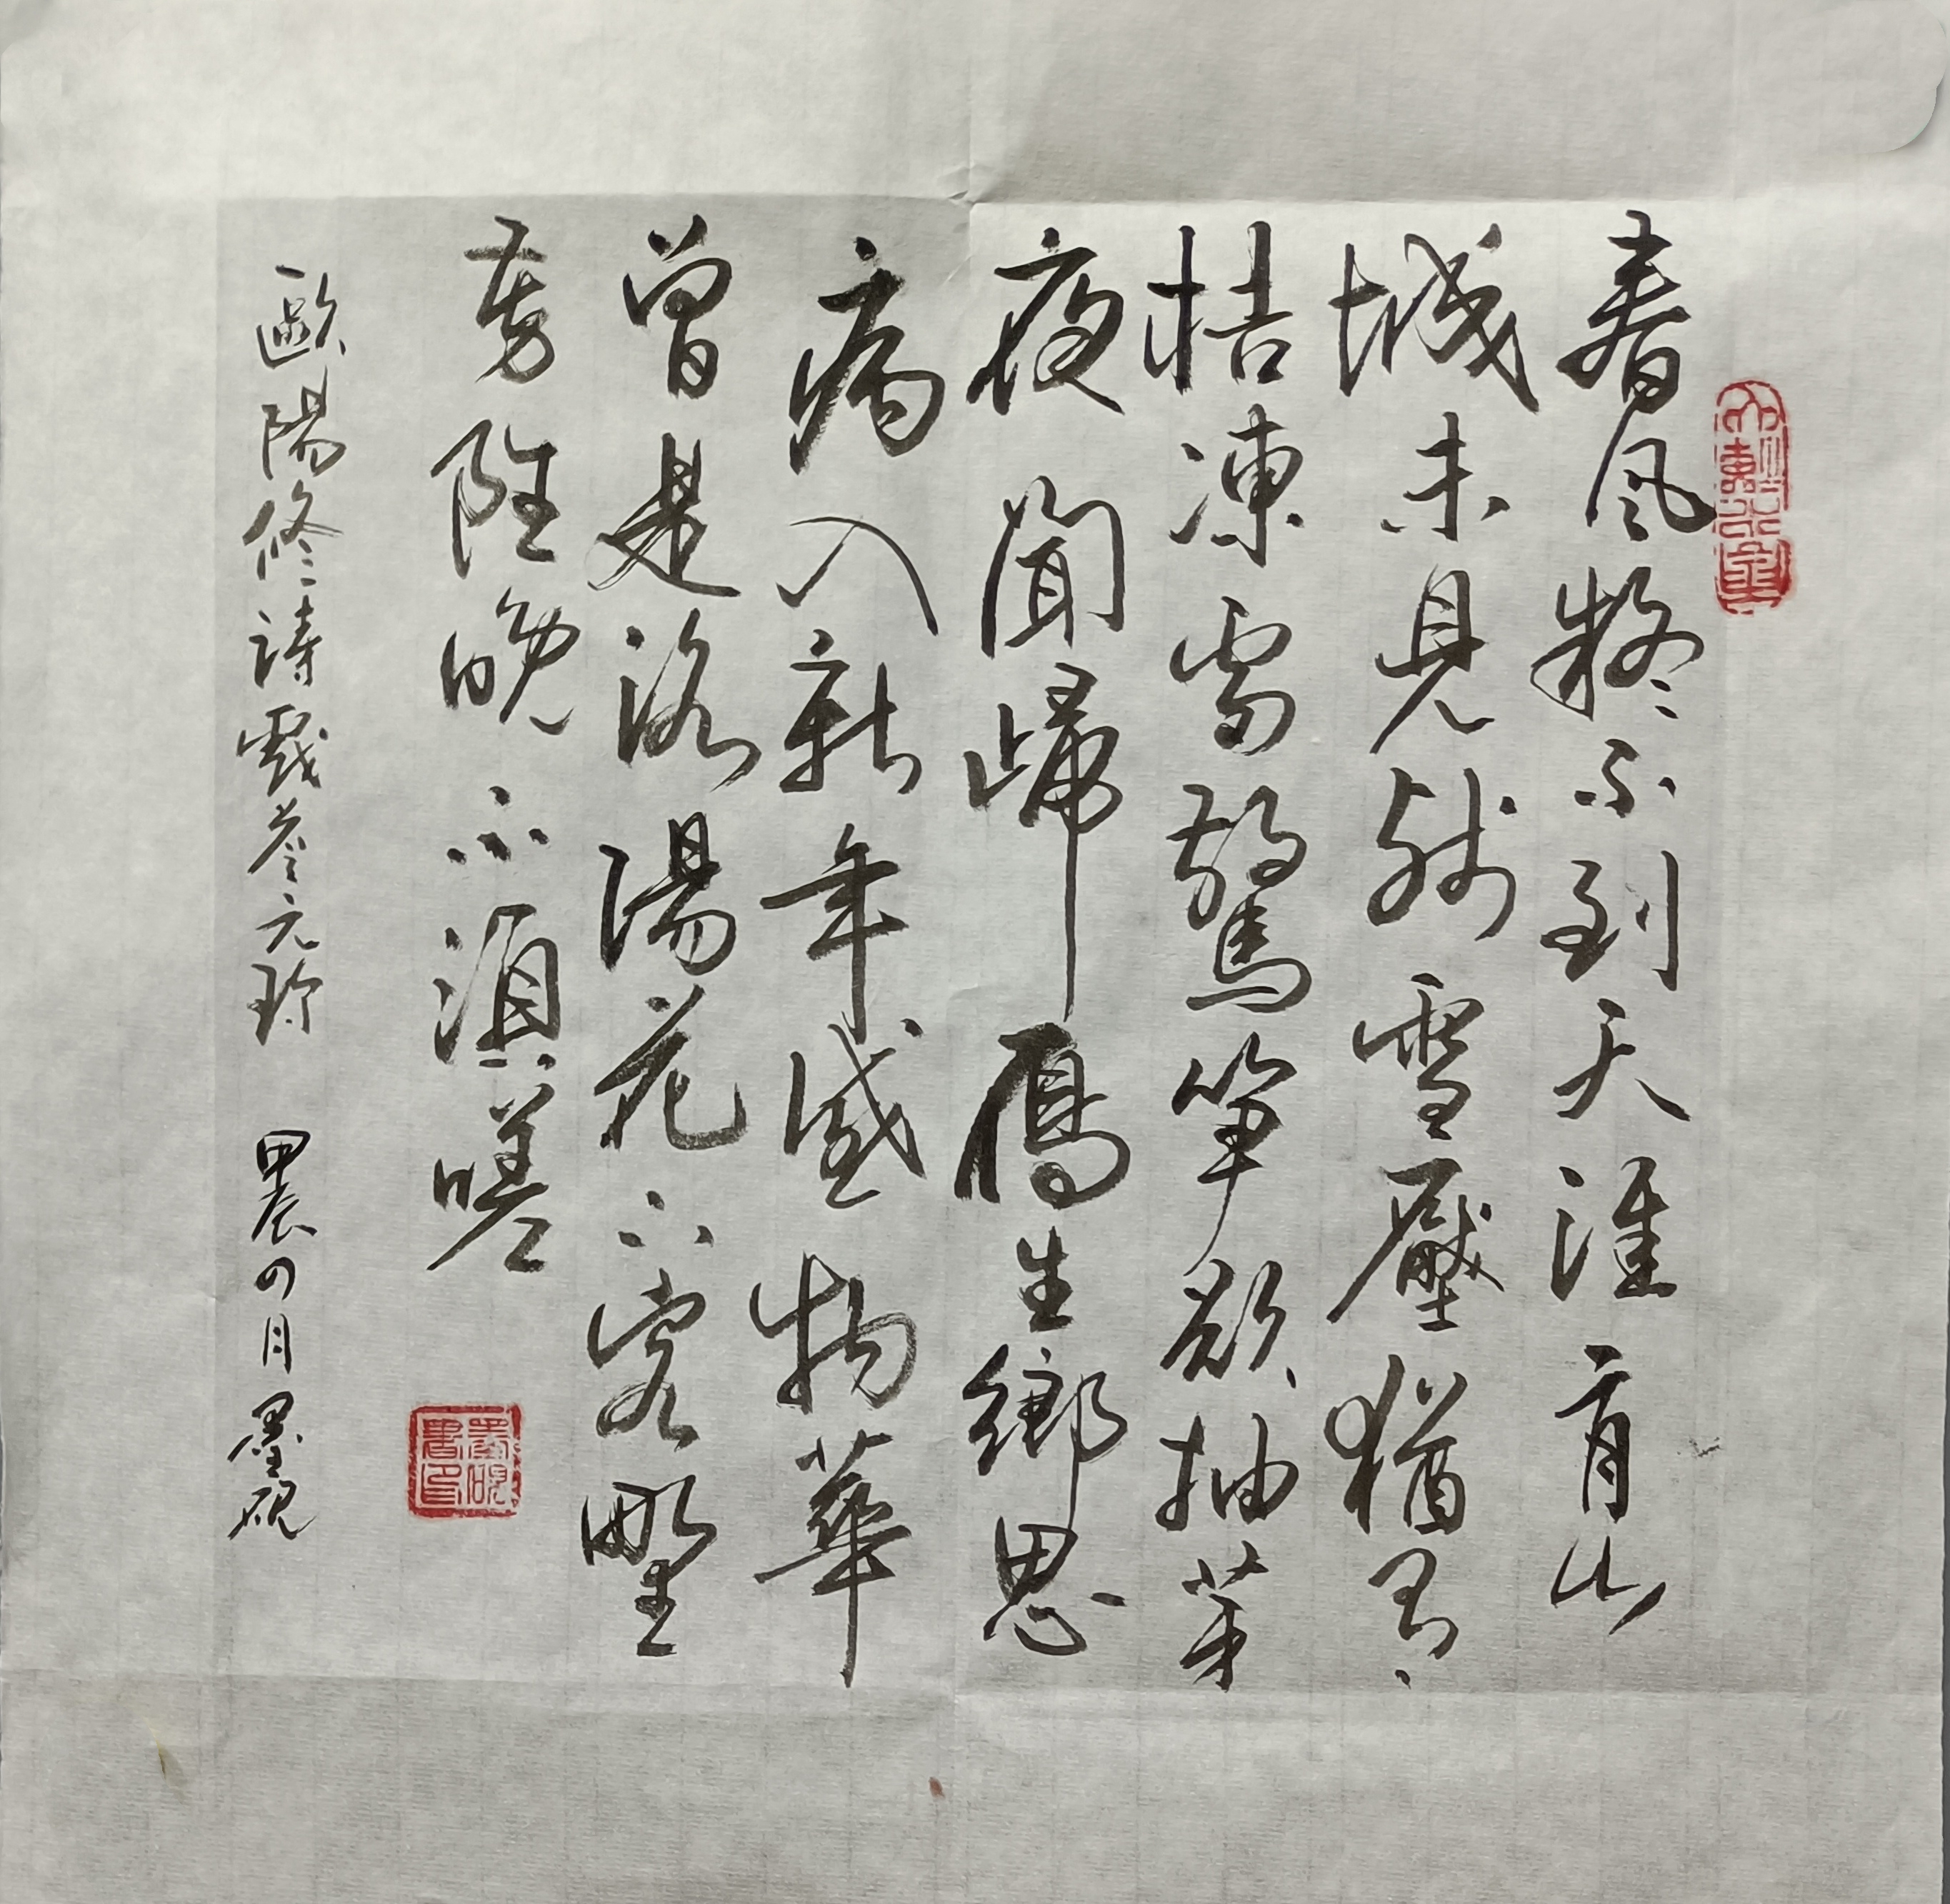 春風疑不到天涯二月山
城未見殘雪壓猶有
桔凍雷驚笋欲抽芽
夜聞歸鴈生鄉思
病入新年感物華
曾是洛陽花下客野
芳雖晚不須嗟
歐陽修詩戲答元珍 甲辰四月墨硯
墨硯書印